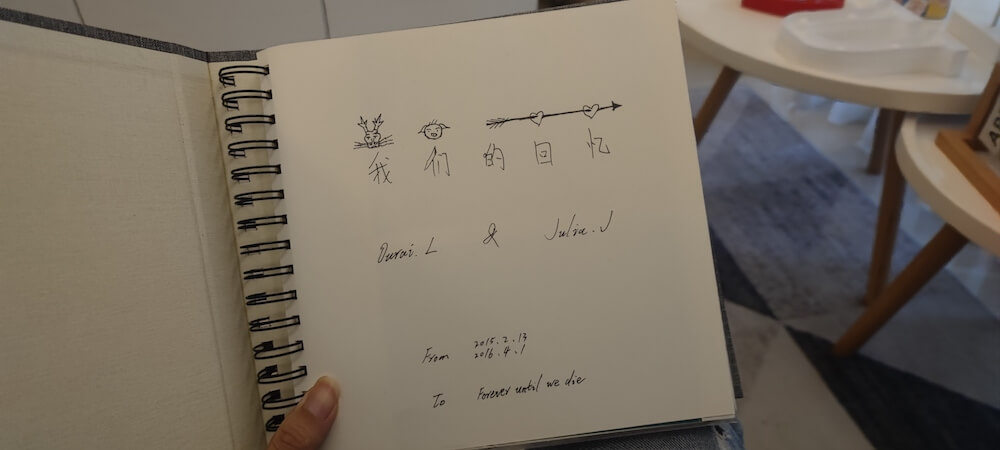 我们的回忆
Durai. L & Julia. J
From 2015. 2. 13
2016. 4. 1
To Forever until we die